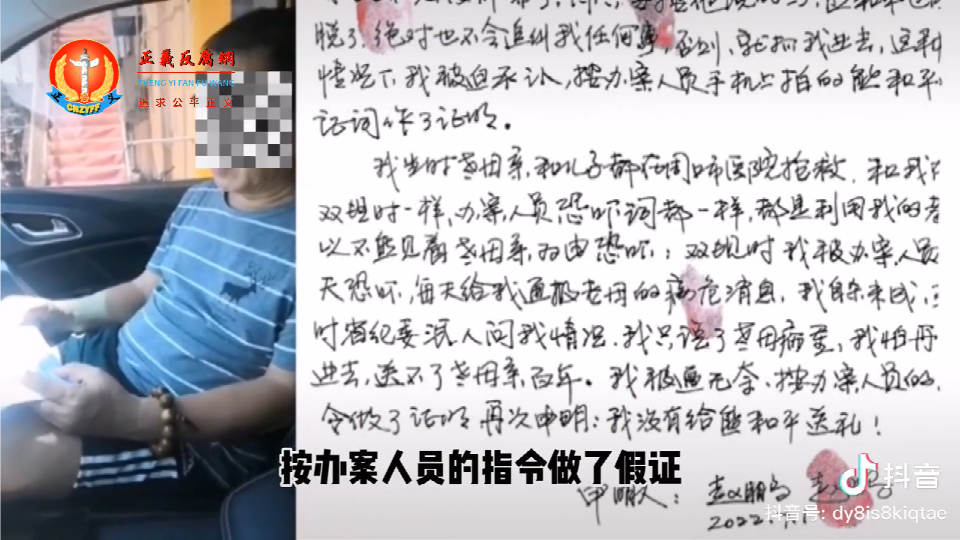 正義反腐網
ZHENG YI FAN FU WANG
追求公平正义
CNZYFF
脱了,绝对也不会追纠我任何事,否则,就抓我进去,这种
情况下,我被迫承认,按办案人员手机上拍的熊和平
证词作了证明。
我当时老母亲和儿子都在周口市医院抢救,和我
双规时一样,办案人员恐吓词都一样,都是利用我的老
以不能见着老母亲为由恐吓;双规时我被办案人员
天恐吓,每天给我通报老母的病危消息,我自杀未成,
时省纪委派人问我情况,我只说了老母病重,我怕再
进去,送不了老母亲百年。我被逼无奈,按办案人员的
令做了证明,再次申明:我没有给熊和平送礼!
按办案人员的指令做了假证
申明人:赵鹏鸟
2022.
抖音
抖音号: dy8is8kiqtae